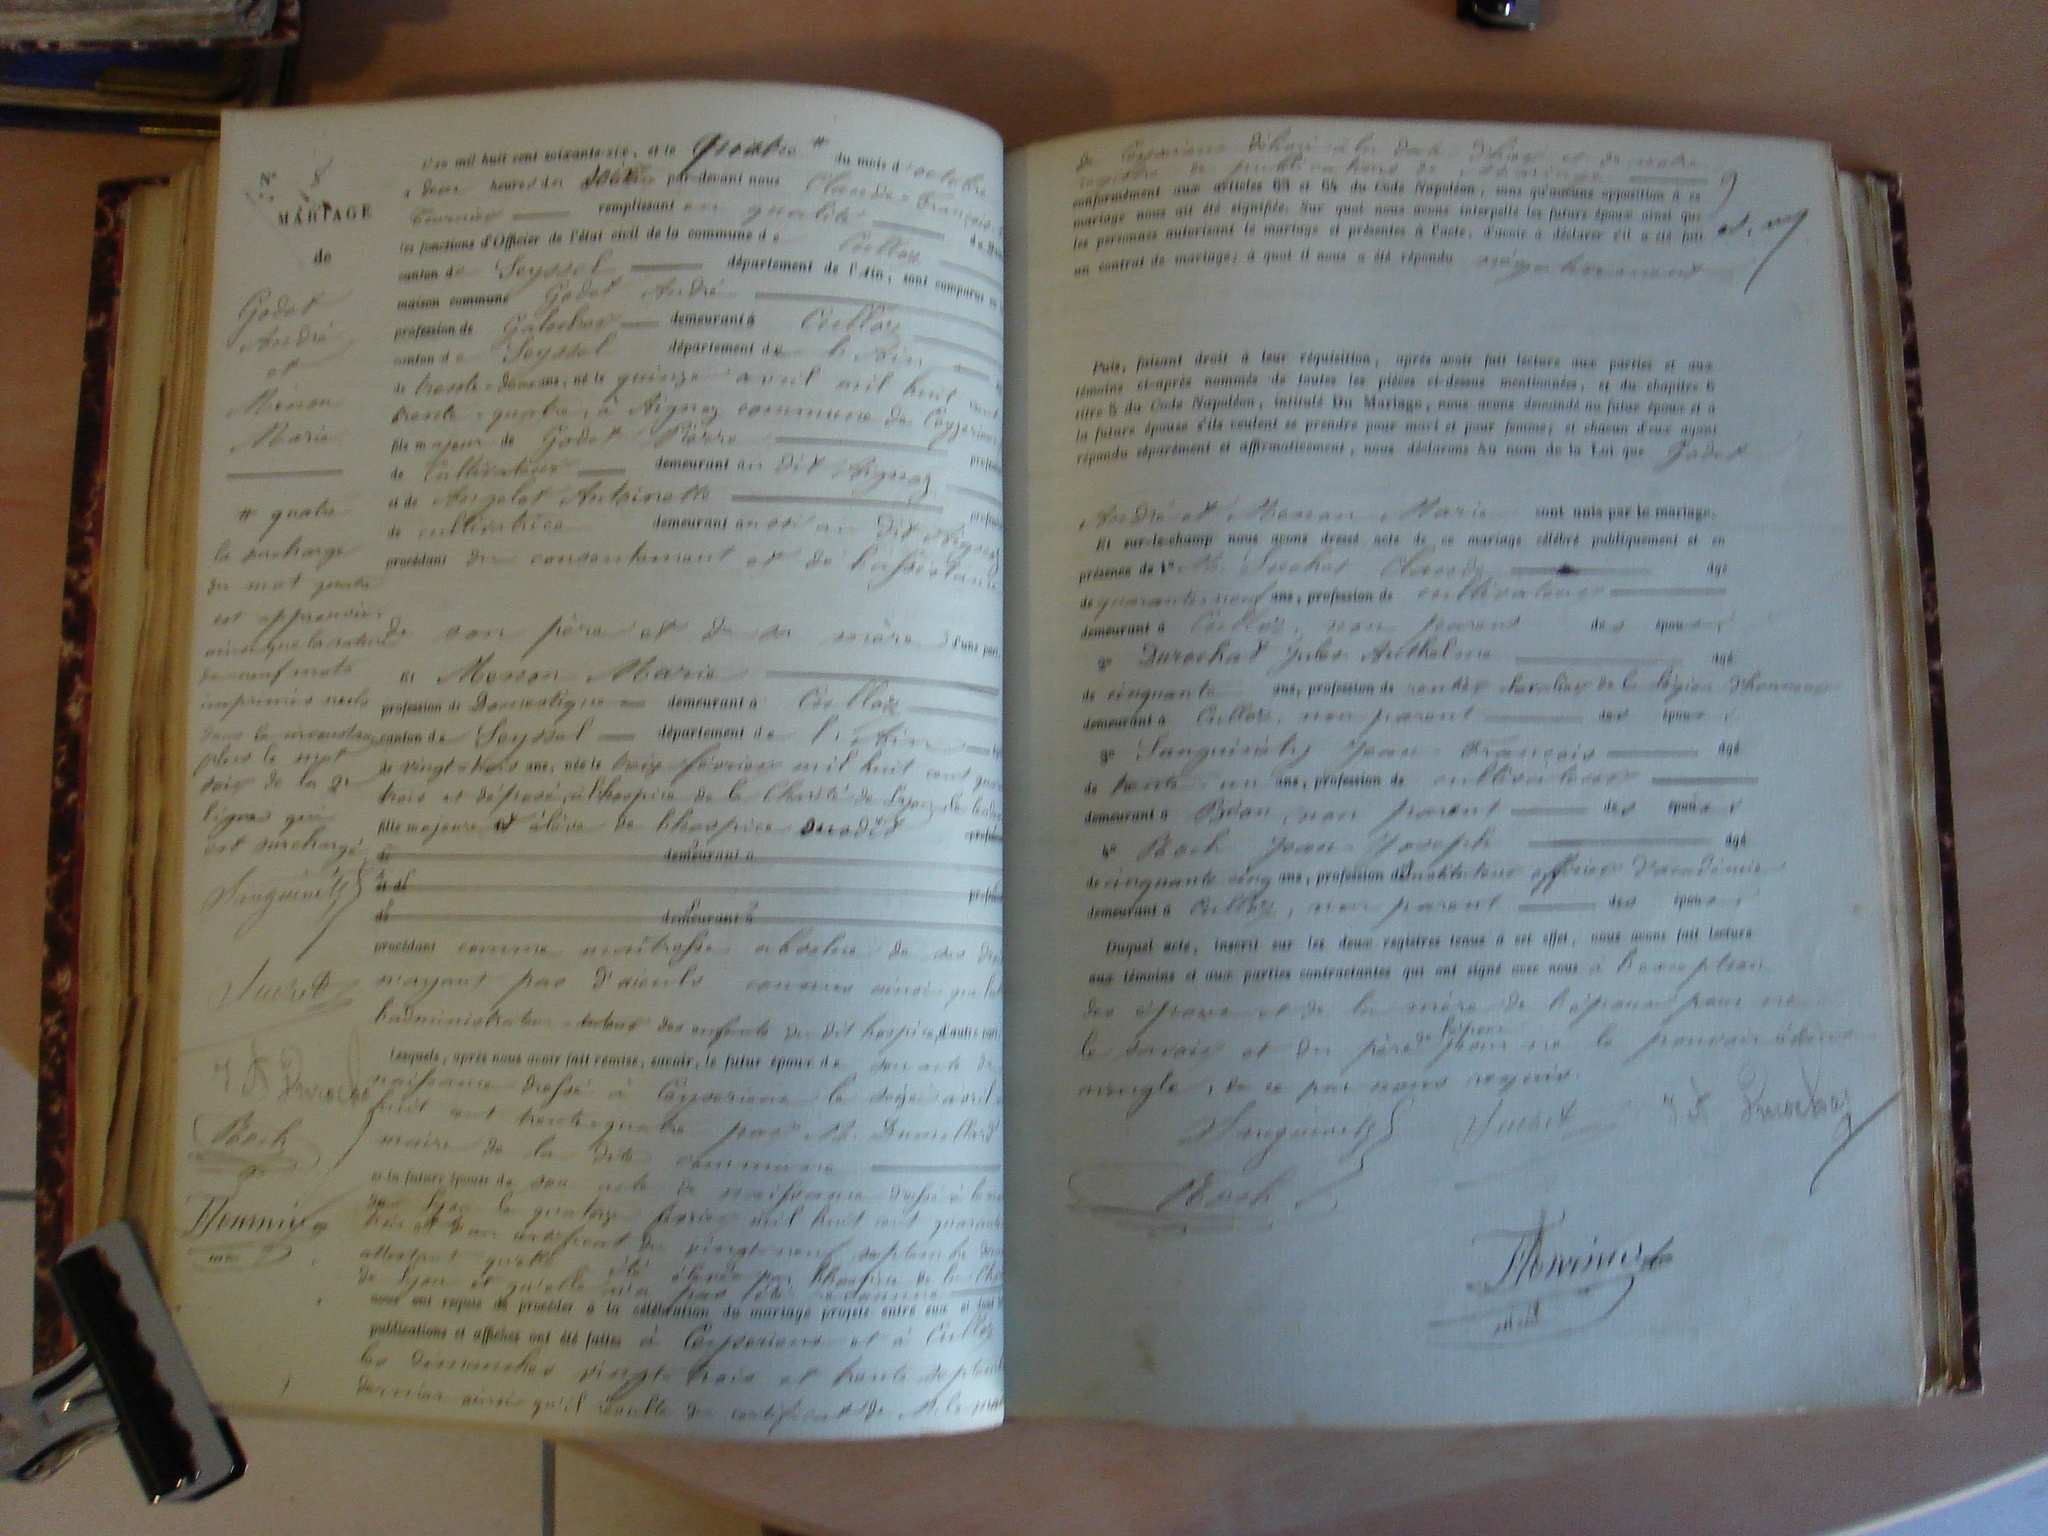 N.° 8
MARIAGE
de
Godet
André
et
Menon
Marie
# quatre
la surcharge
du mot quatre
est approuvée
ainsi que la rature
de neuf mots
imprimés nuls
plus le mot
soir de la 2e
ligne qui
est surchargé
Sanguinety
Suchet
J A Durochat
Roch
maire
L'an mil huit cent soixante-six, et le quatre # du mois d'octobre
à deux heures du soir par-devant nous Claude-François
remplissant en qualité de
les fonctions d'Officier de l'état civil de la commune de Culloz
canton de Seyssel département de l'Ain, sont comparus en
maison commune Godet André
profession de demeurant à Culloz
canton de Seyssel département de l'Ain
de trente-deux ans, né le quinze avril mil huit cent
trente-quatre, à Aignoz commune de Ceyzerieu
fils majeur de Godet Pierre
de cultivateur demeurant au dit Aignoz
et de Antoinette
de cultivatrice demeurant aussi au dit Aignoz
procédant du consentement et de l'assistance
de son père et de sa mère d'une part,
Et Menon Marie
profession de Domestique demeurant à Culloz
canton de Seyssel département de l'Ain
de vingt-trois ans, née le treize février mil huit cent quarante
trois et déposée à l'hospice de la Charité de Lyon le
fille majeure et élève de l'hospice susdit
de demeurant à
et de
de demeurant à
procédant comme maîtresse absolue de ses droits
n'ayant pas d'aïeuls connus ainsi que
l'administrateur tuteur des enfants du dit hospice, d'autre part.
Lesquels, après nous avoir fait remise, savoir, le futur époux de son acte de
naissance dressé à Ceyzerieu le seize avril
huit cent trente-quatre par M. Dumollard
maire de la dite commune
et la future épouse de son acte de naissance dressé à
de Lyon le quatorze février mil huit cent quarante
trois et d'un certificat du vingt-neuf septembre
attestant qu'elle a été élevée par l'hospice de la
de Lyon et qu'elle n'a pas été reconnue
nous ont requis de procéder à la célébration du mariage projeté entre eux et dont les
publications et affiches ont été faites à Ceyzerieu et à Culloz
les dimanches vingt-trois et trente septembre
dernier ainsi qu'il résulte du certificat de M. le maire
de Ceyzerieu délivré à la date d'hier et de notre
registre de publications de mariage
conformément aux articles 63 et 64 du Code Napoléon, sans qu'aucune opposition à ce
mariage nous ait été signifiée. Sur quoi nous avons interpellé les futurs époux ainsi que
les personnes autorisant le mariage et présentes à l'acte, d'avoir à déclarer s'il a été fait
un contrat de mariage; à quoi il nous a été répondu négativement
Puis, faisant droit à leur réquisition, après avoir fait lecture aux parties et aux
témoins ci-après nommés de toutes les pièces ci-dessus mentionnées, et du chapitre 6
titre 5 du Code Napoléon, intitulé Du Mariage, nous avons demandé au futur époux et à
la future épouse s'ils veulent se prendre pour mari et pour femme; et chacun d'eux ayant
répondu séparément et affirmativement, nous déclarons Au nom de la Loi que Godet
André et Menon Marie sont unis par le mariage.
Et sur-le-champ nous avons dressé acte de ce mariage célébré publiquement et en
présence de 1° M. Suchet Claude âgé
de quarante-neuf ans, profession de cultivateur
demeurant à Culloz, non parent des époux;
2° Durochat Jules Anthelme âgé
de cinquante ans, profession de rentier chevalier de la légion d'honneur
demeurant à Culloz, non parent des époux;
3° Sanguinety Jean-François âgé
de trente un ans, profession de cultivateur
demeurant à Béon, non parent des époux;
4° Roch Jean-Joseph âgé
de cinquante cinq ans, profession d'instituteur officier d'académie
demeurant à Culloz, non parent des époux;
Duquel acte, inscrit sur les deux registres tenus à cet effet, nous avons fait lecture
aux témoins et aux parties contractantes qui ont signé avec nous à l'exception
des époux et de la mère de l'époux pour ne
le savoir et du père de l'époux pour ne le pouvoir étant
aveugle, de ce par nous requis.
Sanguinety Suchet J A Durochat
Roch